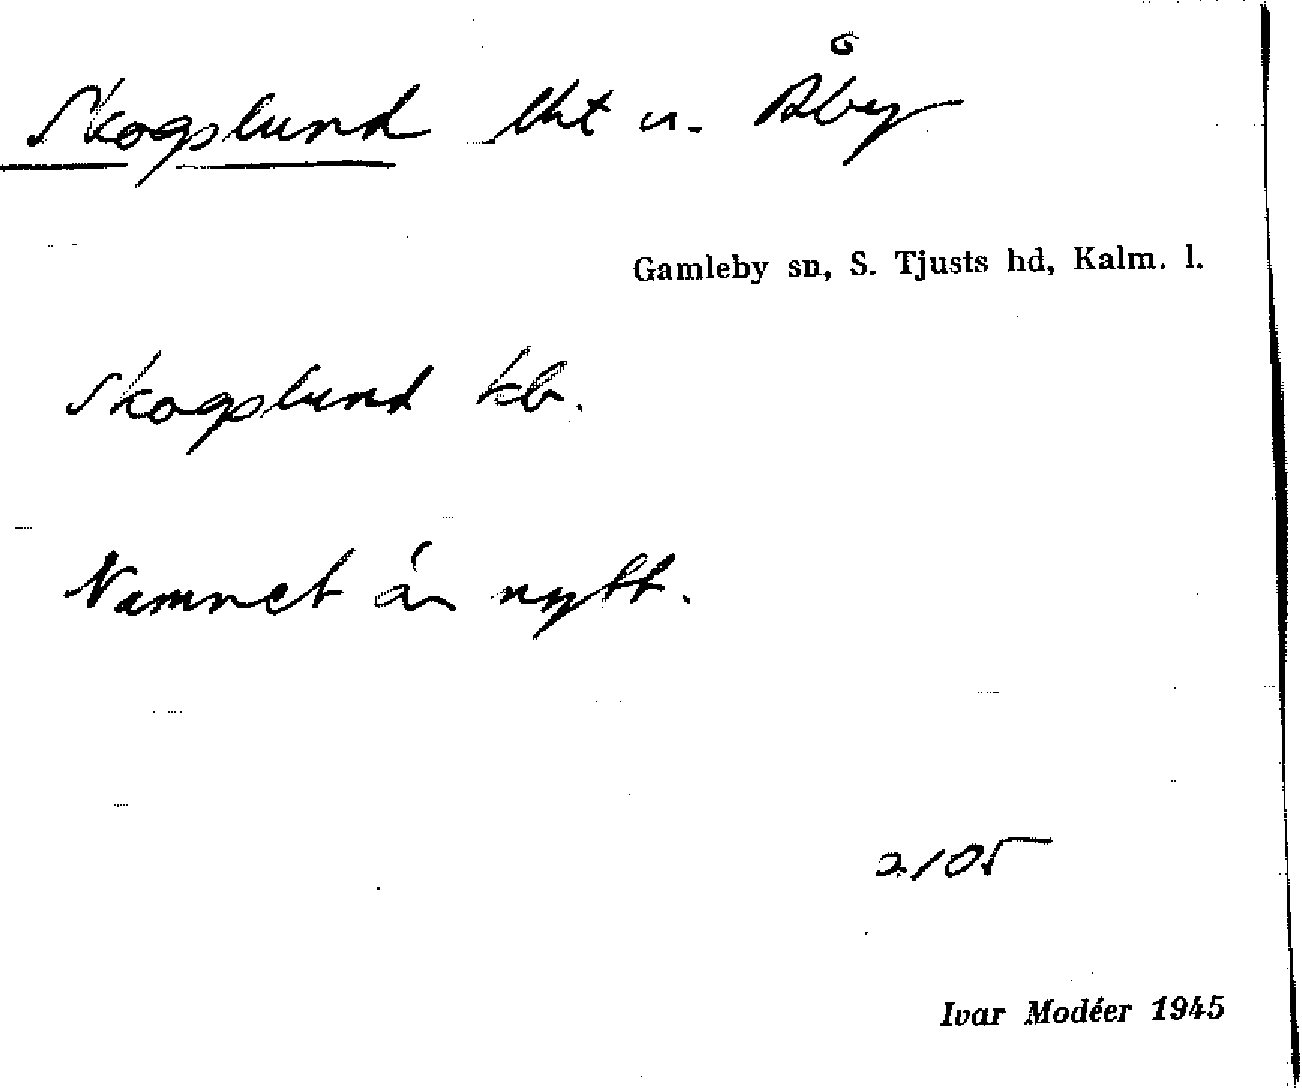 Skogslund lht u. Åby
Gamleby sn, S. Tjusts hd, Kalm. l.
Skogslund kb.
Namnet är nytt.
2105
Ivar Modéer 1945